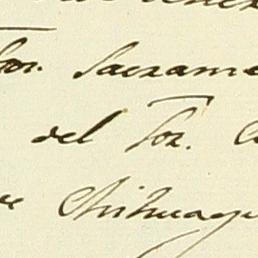 Sor. Sacrame
del Sor. C
Chihuagu